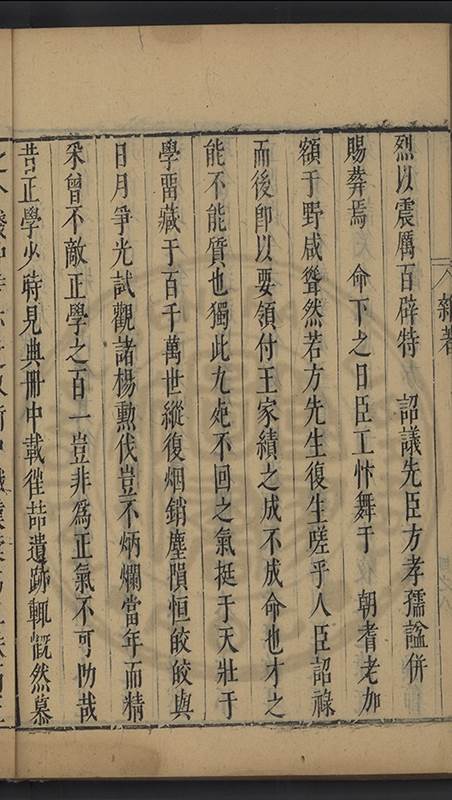 烈以震厲百辟特　詔議先臣方孝孺諡併
賜葬焉　命下之日臣工忭舞于　朝耆老加
額于野咸聳然若方先生復生嗟乎人臣詔祿
而後卽以要領付王家績之成不成命也才之
能不能質也獨此九死不回之氣挺于天壯于
學畱藏于百千萬世縱復烟銷塵隕恒皎皎與
日月爭光試觀諸楊勲伐豈不炳爛當年而精
采曾不敵正學之百一豈非爲正氣不可刓哉
昔正學少時見典冊中載徃喆遺跡輒慨然慕